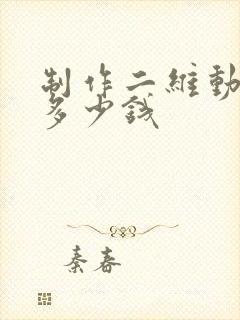 制作二維動
多少錢
秦春